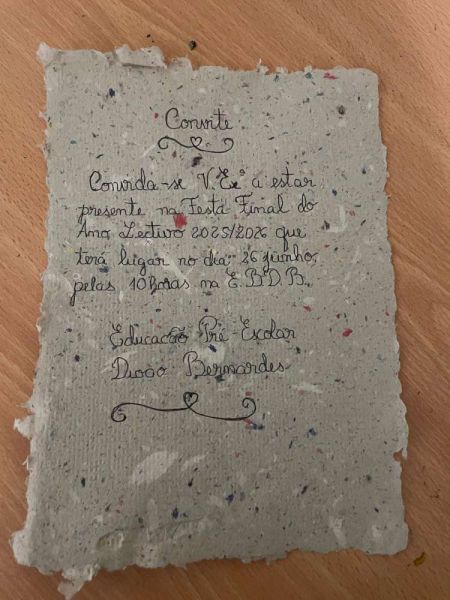 Convite
Convida-se V. Exª a estar
presente na Festa Final do
Ano Lectivo 2025/2026 que
terá lugar no dia: 26 junho,
pelas 10 horas na E.B.D.B.
Educação Pré-Escolar
Diogo Bernardes